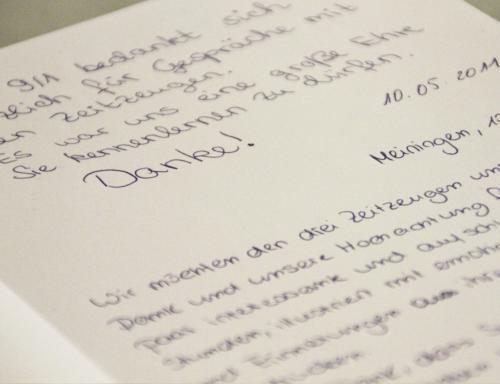 9/1 bedankt sich
zlich für Gespräche mit
en Zeitzeugen.
Es war uns eine große Ehre
Sie kennenlernen zu dürfen.
Danke!
10.05.2011
Meiningen, 1
Wir möchten den drei Zeitzeugen un
Dank und unsere Hochachtung
paar interessante und aufschl
Stunden, illustriert mit emotio
und Erinnerungen aus ihr
dass